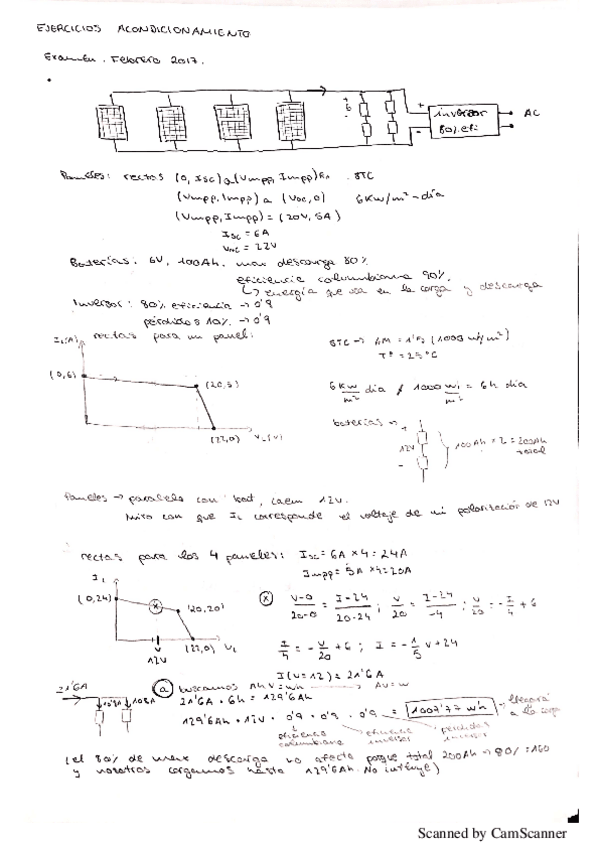 EJERCICIOS ACONDICIONAMIENTO
Examen. Febrero 2017.
inversor
80% efi
AC
Paneles: rectas (0, Isc) a (Vmpp, Impp) STC
(Vmpp, Impp) a (Voc, 0) 6 Kw/m² - día
(Vmpp, Impp) = (20V, 5A)
Isc = 6A
Voc = 22V
Baterías: 6V, 100Ah. max descarga 80%
eficiencia columbiana 90%.
↳ energía que va en la carga y descarga
Inversor: 80% eficiencia → 0'9
pérdidas 10% → 0'9
rectas para un panel:
STC → AM = 1'5 (1000 w/m²)
Tª = 25ºC
(0,6)
(20,5)
(22,0)
6 Kw/m² día 1000 w/m² = 6h día
baterías →
12V
100Ah · 2 = 200Ah
total
Paneles → paralelo con bat, caen 12V.
Miro con que IL corresponde el voltaje de mi polarización de 12V
rectas para los 4 paneles: Isc = 6A × 4 = 24A
Impp = 5A × 4 = 20A
(0,24)
(20,20)
(22,0)
12V
(x) V-0/20-0 = I-24/20-24 ; V/20 = I-24/-4 ; V/20 = -I/4 + 6
I/4 = -V/20 + 6 ; I = -1/5 V + 24
I(V=12) = 21'6A
21'6A
10'8A 10'8A
(a) buscamos Ah V = Wh AV = W
21'6A · 6h = 129'6Ah
129'6Ah · 12V · 0'9 · 0'9 · 0'9 = 1007'77 wh
llegará a la carga
eficiencia columbiana
eficiencia inversor
pérdidas inversor
(el 80% de max descarga no afecta porque total 200Ah → 80% = 160
y nosotros cargamos hasta 129'6Ah. No influye)
Scanned by CamScanner